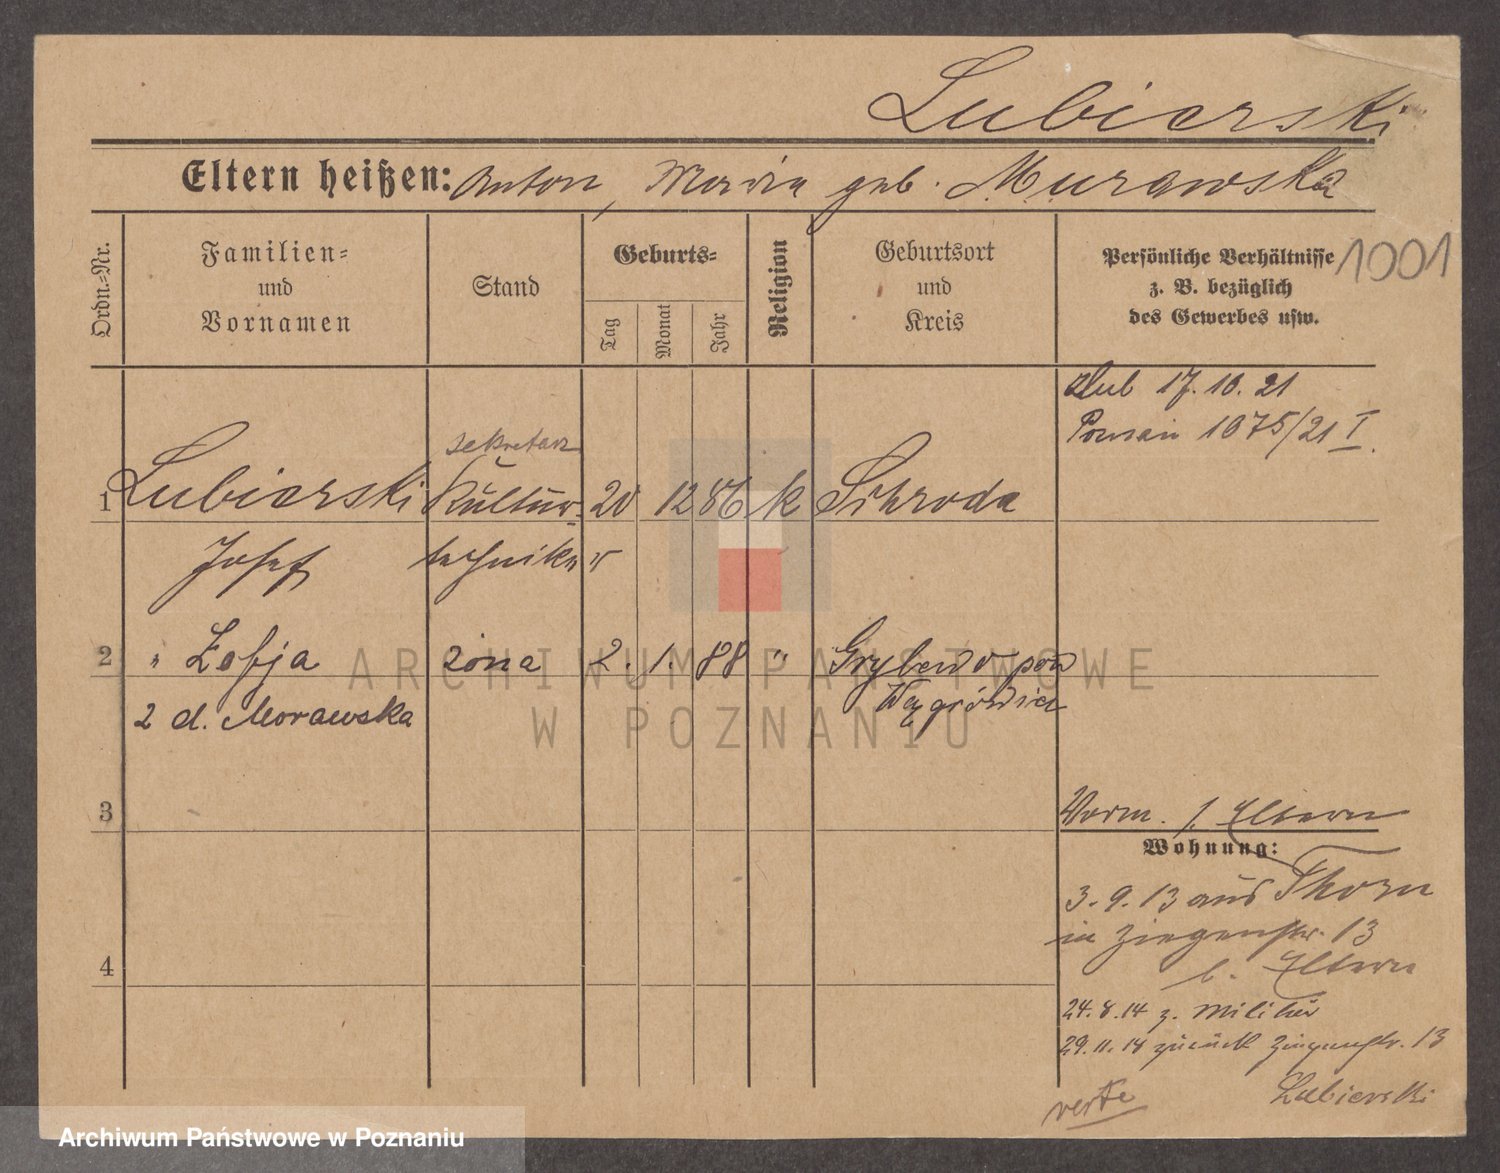 Lubierski
Eltern heißen: Anton, Maria geb. Murawska
Ordn.-Nr.
Familien-
und
Vornamen
Stand
Geburts-
Tag
Monat
Jahr
Religion
Geburtsort
und
Kreis
Persönliche Verhältnisse
z. B. bezüglich
des Gewerbes usw.
1001
ślub 17.10.21
Poznań 1075/21 I.
sekretarz
1 Lubierski Kultur- 20 12 86 k Schroda
Josef techniker
2 " Zofja żona 2. 1. 88 "
2 d. Morawska
3
Vorm. s. Eltern
Wohnung:
3.9.13 aus Thorn
in Ziegenstr. 13
b. Eltern
4
24.8.14 z. Militär
29.11.18 zurück Ziegenstr. 13
Lubierski
verte
ARCHIWUM PAŃSTWOWE
W POZNANIU
Archiwum Państwowe w Poznaniu